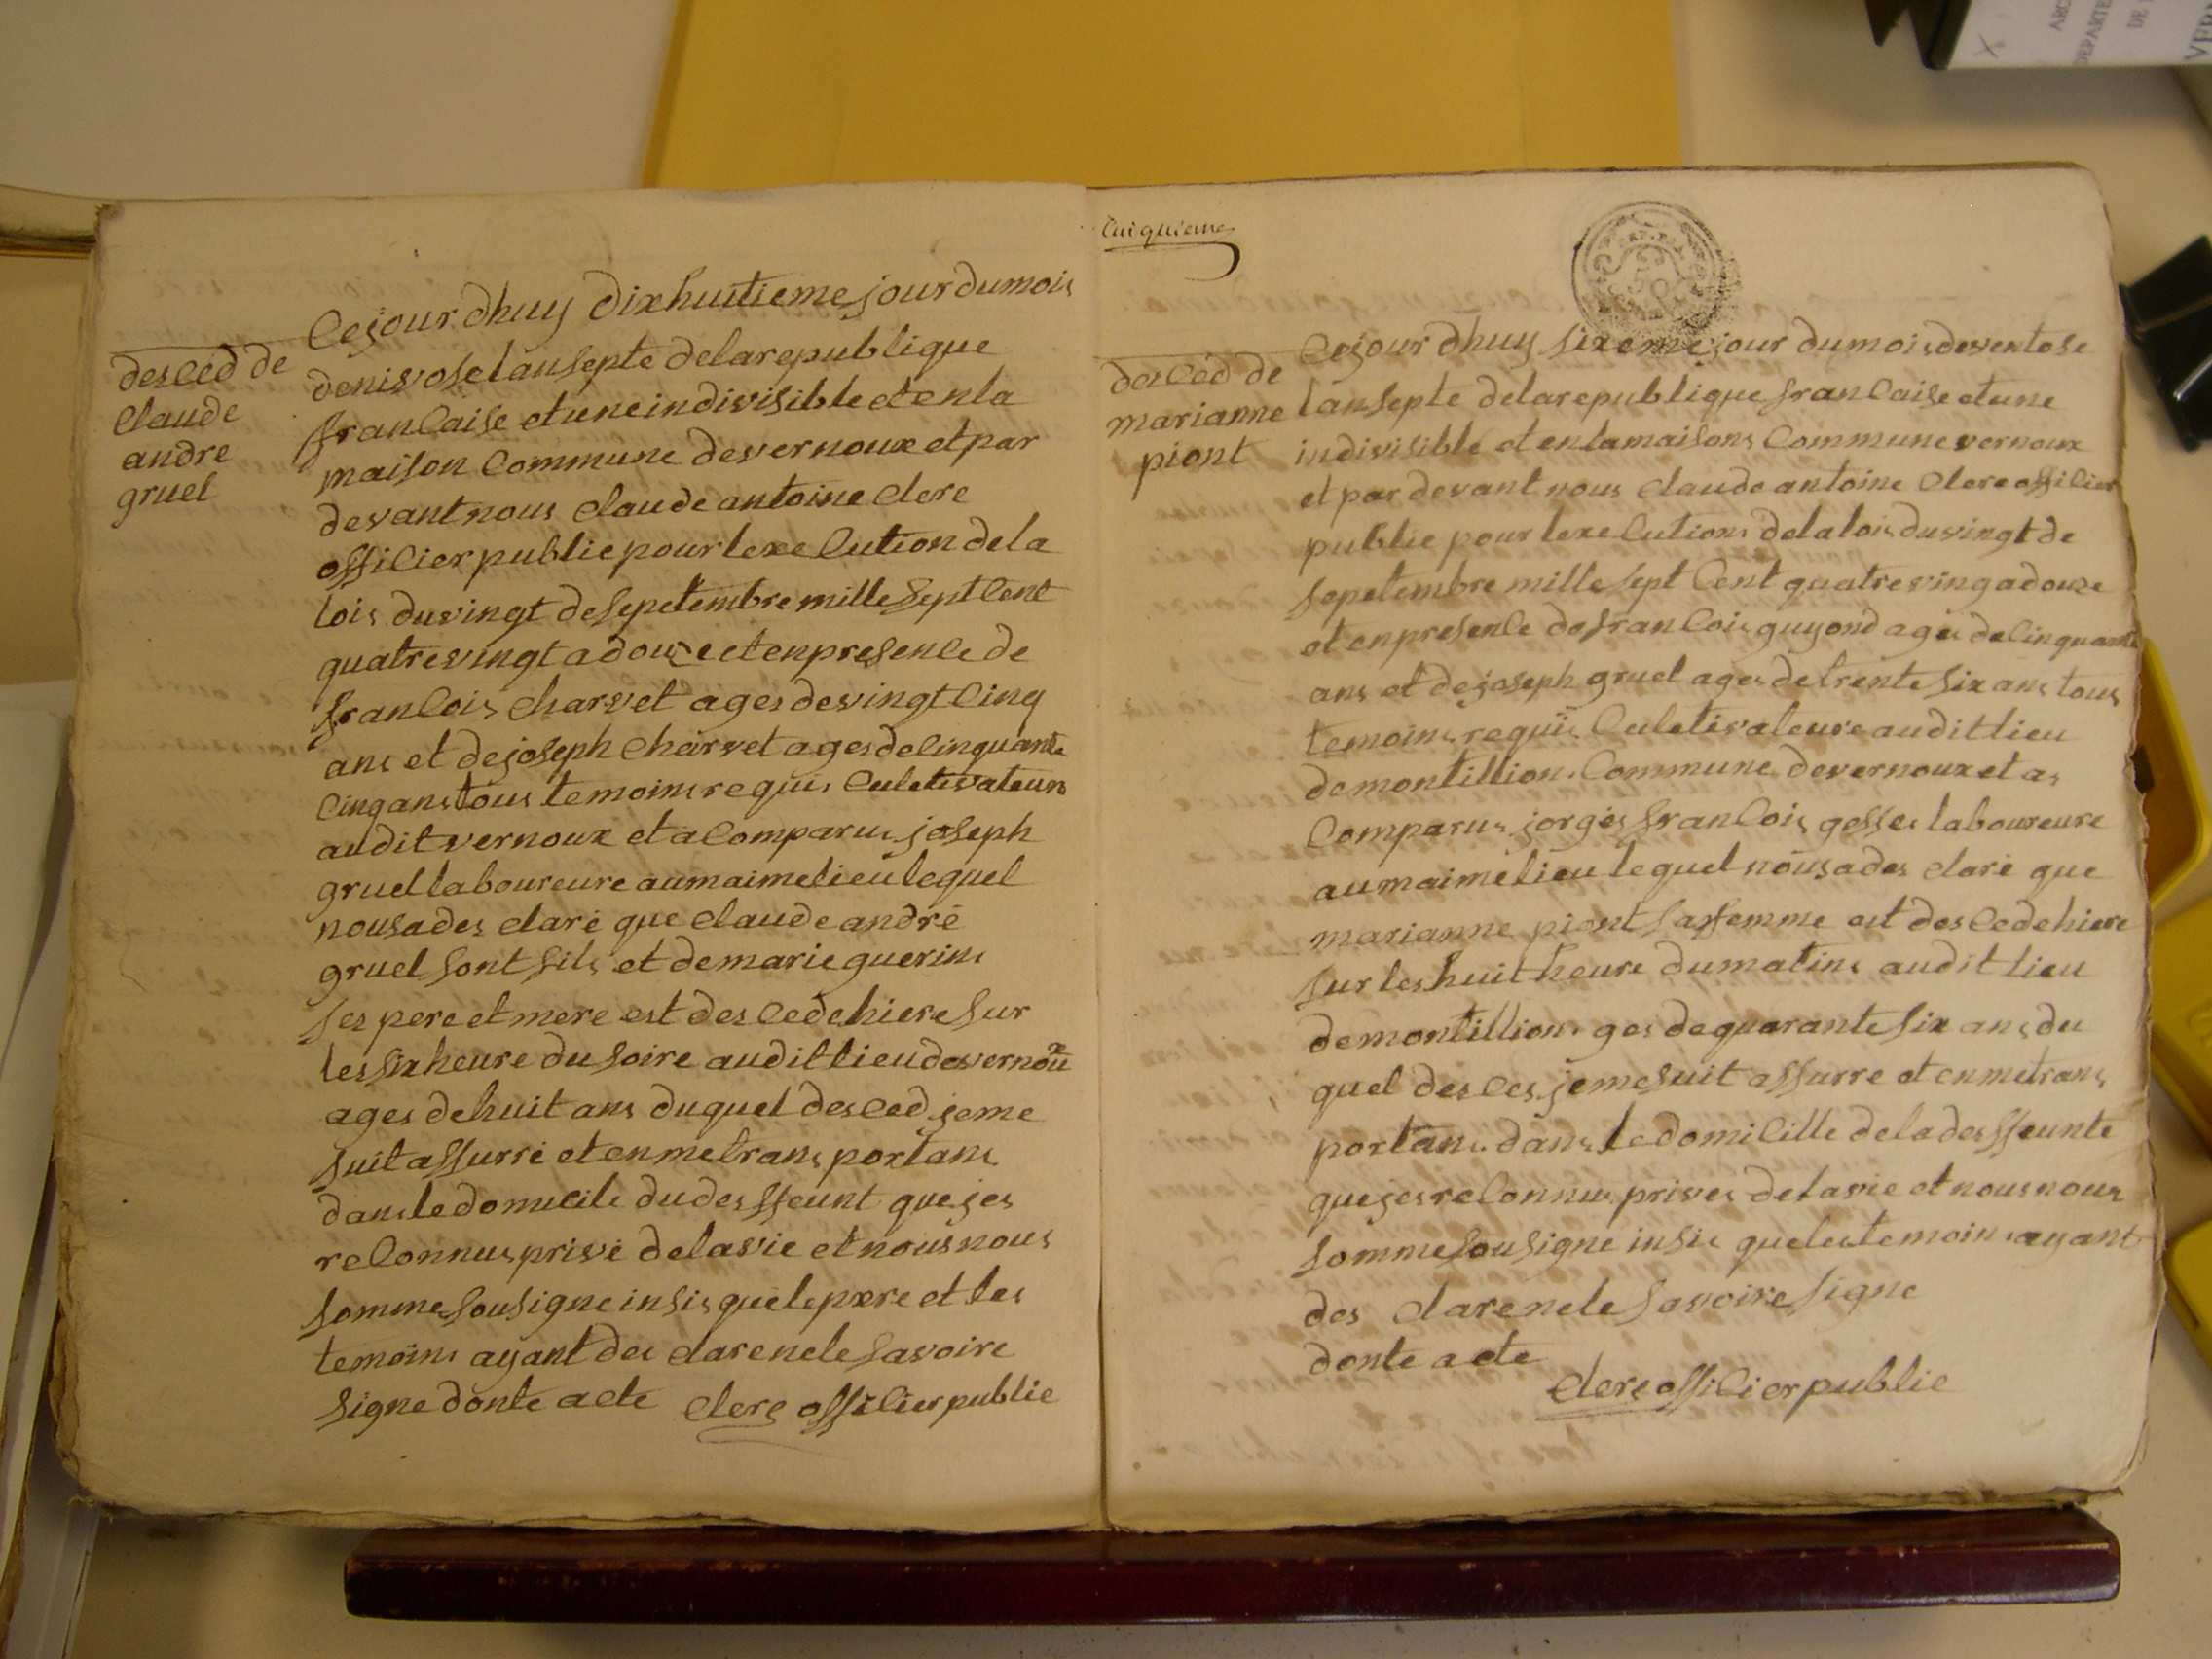 desced de
Claude
andre
gruel
Cejour dhuy dixhuitieme jour dumois
denivose lan septe delarepublique
francaise etune indivisible et en la
maison Commune devernoux et par
devant nous Claude antoine Clerc
officier public pour lexecution de la
lois du vingt de sepetembre mille sept Cent
quatre vingt a douze et en presence de
francois Charvet ages de vingt Cinq
ans et de joseph Charvet ages de Cinquante
Cinq ans tous temoins requis Culetivateurs
audit vernoux et a Comparus joseph
gruel laboureure aumaime lieu lequel
nous a des claré que Claude andré
gruel sont fils et de marie guerins
ses pere et mere est des cede hiere sur
les six heure du soire audit lieu de vernoux
ages de huit ans duquel desced je me
suit assurré et en me trans portans
dans le domicile du desffeunt que jes
reConnus privé de la vie et nous nous
somme sousigne insis que le pere et les
temoins ayant des clare ne le savoire
signe donte acte Clerc officier public
Cuiquieme
desced de
marianne
piont
Cejour dhuy sixeme jour du mois de ventose
lan septe delarepublique francaise et une
indivisible et en la maisons Commune vernoux
et par devant nous Claude antoine Clerc officier
public pour lexecutions de la lois du vingt de
sepetembre mille sept Cent quatre ving a douze
et en presence de francois guyond ages de Cinquante
ans et de joseph gruel ages de trente six ans tous
temoins requis Culetivateure audit lieu
de montillion Commune de vernoux et as
Comparus jorges francois gesses laboureure
au maime lieu lequel nous a des claré que
marianne piont saffemme est des cede hiere
sur les huit heure du matins audit lieu
de montillion ges de quarante six ans du
quel des ces je me suit assurre et en me trans
portans dans le domicille de la desffeunte
que jes reConnus prives de la vie et nous nous
somme sousigne insis que les temoins ayant
des clare ne le savoire signe
donte acte
Clerc officier public